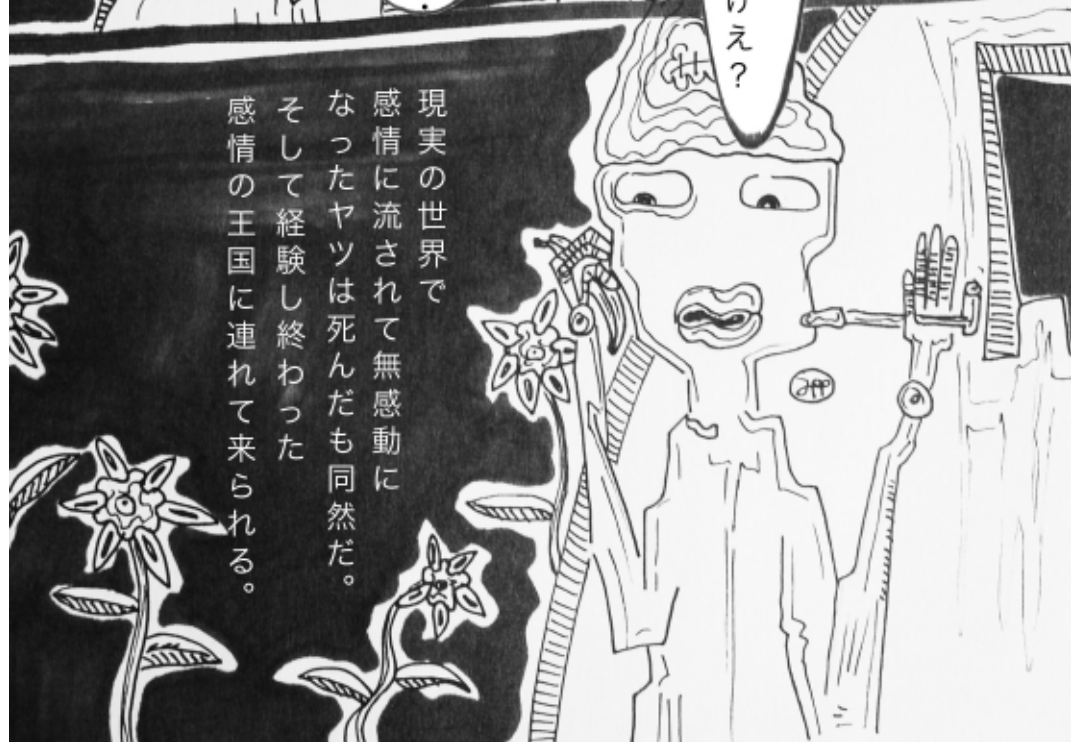 けえ？
現実の世界で
感情に流されて無感動に
なったヤツは死んだも同然だ。
そして経験し終わった
感情の王国に連れて来られる。